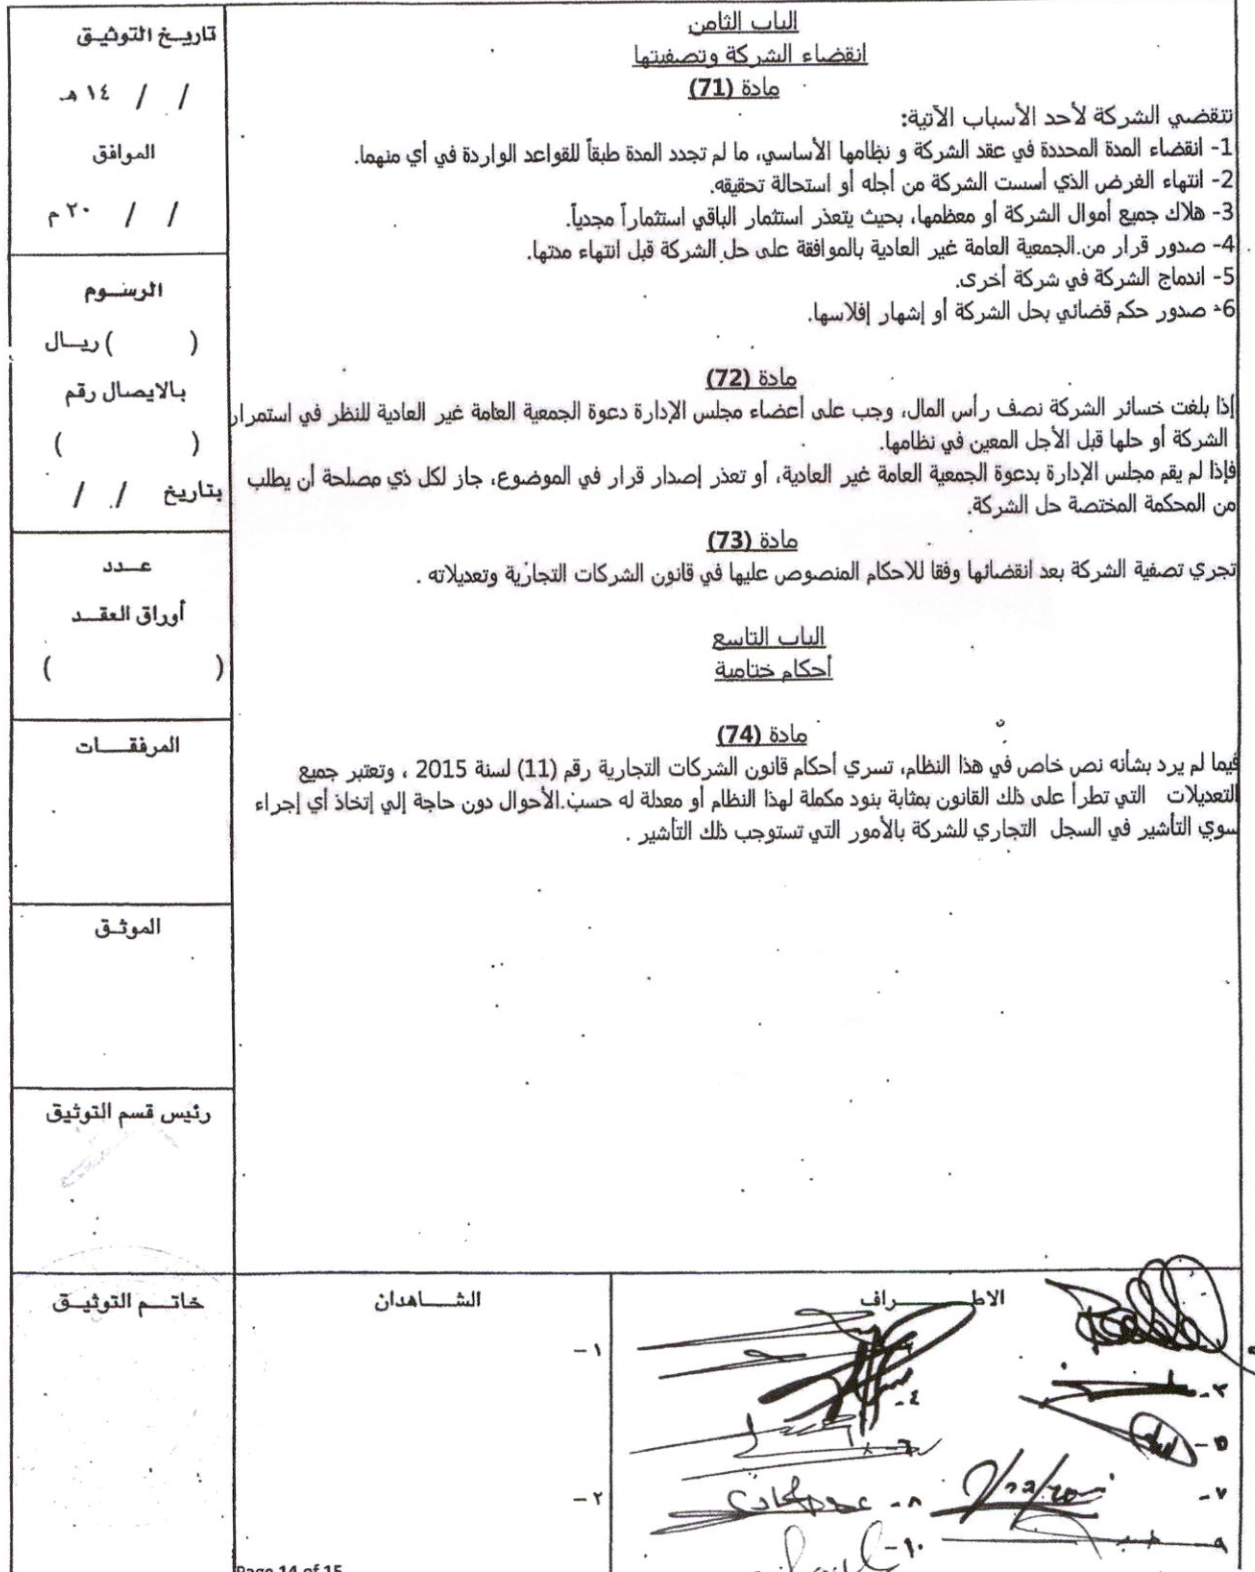 الباب الثامن
انقضاء الشركة وتصفيتها
مادة (71)
تنقضي الشركة لأحد الأسباب الآتية:
1- انقضاء المدة المحددة في عقد الشركة و نظامها الأساسي، ما لم تجدد المدة طبقاً للقواعد الواردة في أي منهما.
2- انتهاء الغرض الذي أسست الشركة من أجله أو استحالة تحقيقه.
3- هلاك جميع أموال الشركة أو معظمها، بحيث يتعذر استثمار الباقي استثماراً مجدياً.
4- صدور قرار من الجمعية العامة غير العادية بالموافقة على حل الشركة قبل انتهاء مدتها.
5- اندماج الشركة في شركة أخرى.
6- صدور حكم قضائي بحل الشركة أو إشهار إفلاسها.
مادة (72)
إذا بلغت خسائر الشركة نصف رأس المال، وجب على أعضاء مجلس الإدارة دعوة الجمعية العامة غير العادية للنظر في استمرار
الشركة أو حلها قبل الأجل المعين في نظامها.
فإذا لم يقم مجلس الإدارة بدعوة الجمعية العامة غير العادية، أو تعذر إصدار قرار في الموضوع، جاز لكل ذي مصلحة أن يطلب
من المحكمة المختصة حل الشركة.
مادة (73)
تجري تصفية الشركة بعد انقضائها وفقا للاحكام المنصوص عليها في قانون الشركات التجارية وتعديلاته .
الباب التاسع
أحكام ختامية
مادة (74)
فيما لم يرد بشأنه نص خاص في هذا النظام، تسري أحكام قانون الشركات التجارية رقم (11) لسنة 2015 ، وتعتبر جميع
التعديلات التي تطرأ على ذلك القانون بمثابة بنود مكملة لهذا النظام أو معدلة له حسب الأحوال دون حاجة إلي إتخاذ أي إجراء
سوي التأشير في السجل التجاري للشركة بالأمور التي تستوجب ذلك التأشير .
تاريخ التوثيق
/ / ١٤ هـ
الموافق
/ / ٢٠ م
الرسوم
( ) ريال
بالايصال رقم
( )
بتاريخ / /
عدد
أوراق العقد
( )
المرفقات
الموثق
رئيس قسم التوثيق
خاتم التوثيق
الاطراف
٣-
٤-
٥-
٦-
٧-
٨-
٩
١٠-
الشاهدان
١-
٢-
Page 14 of 15